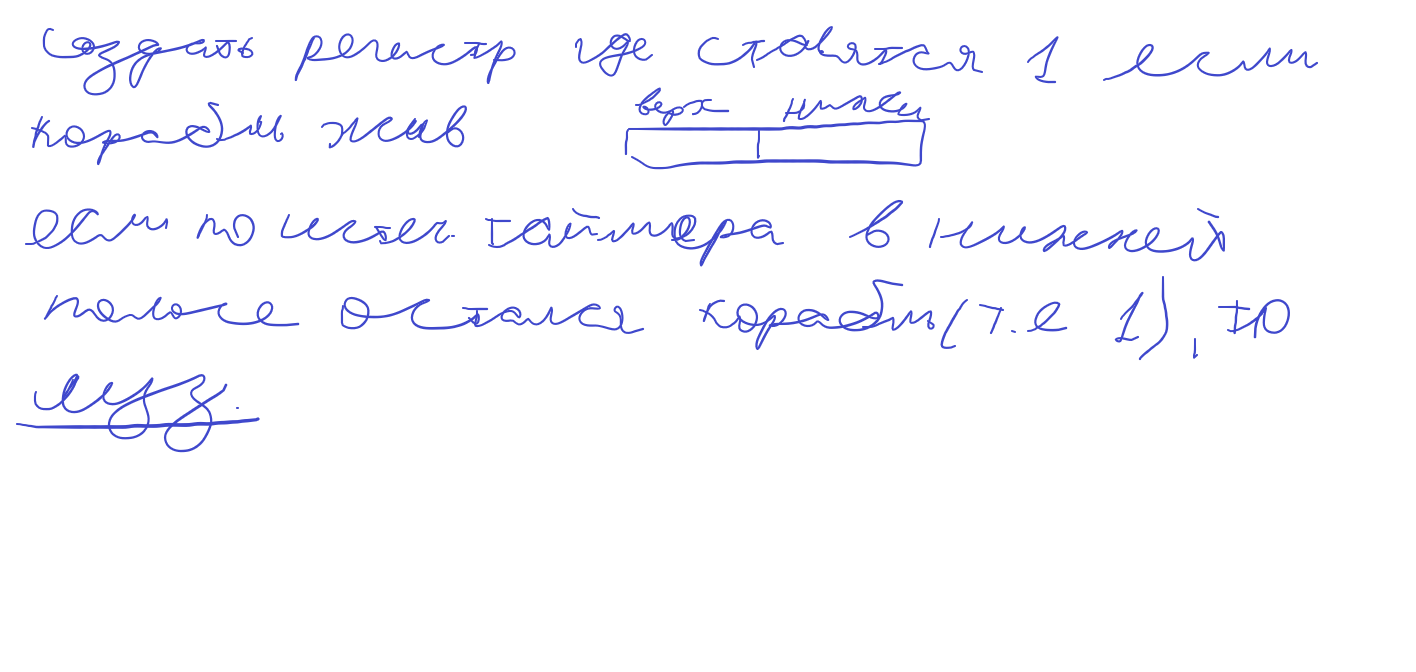 создать регистр где ставятся 1 если
корабль жив
верх нижн
если по истеч. таймера в нижней
полосе остался корабль (т.е 1), то
луз.